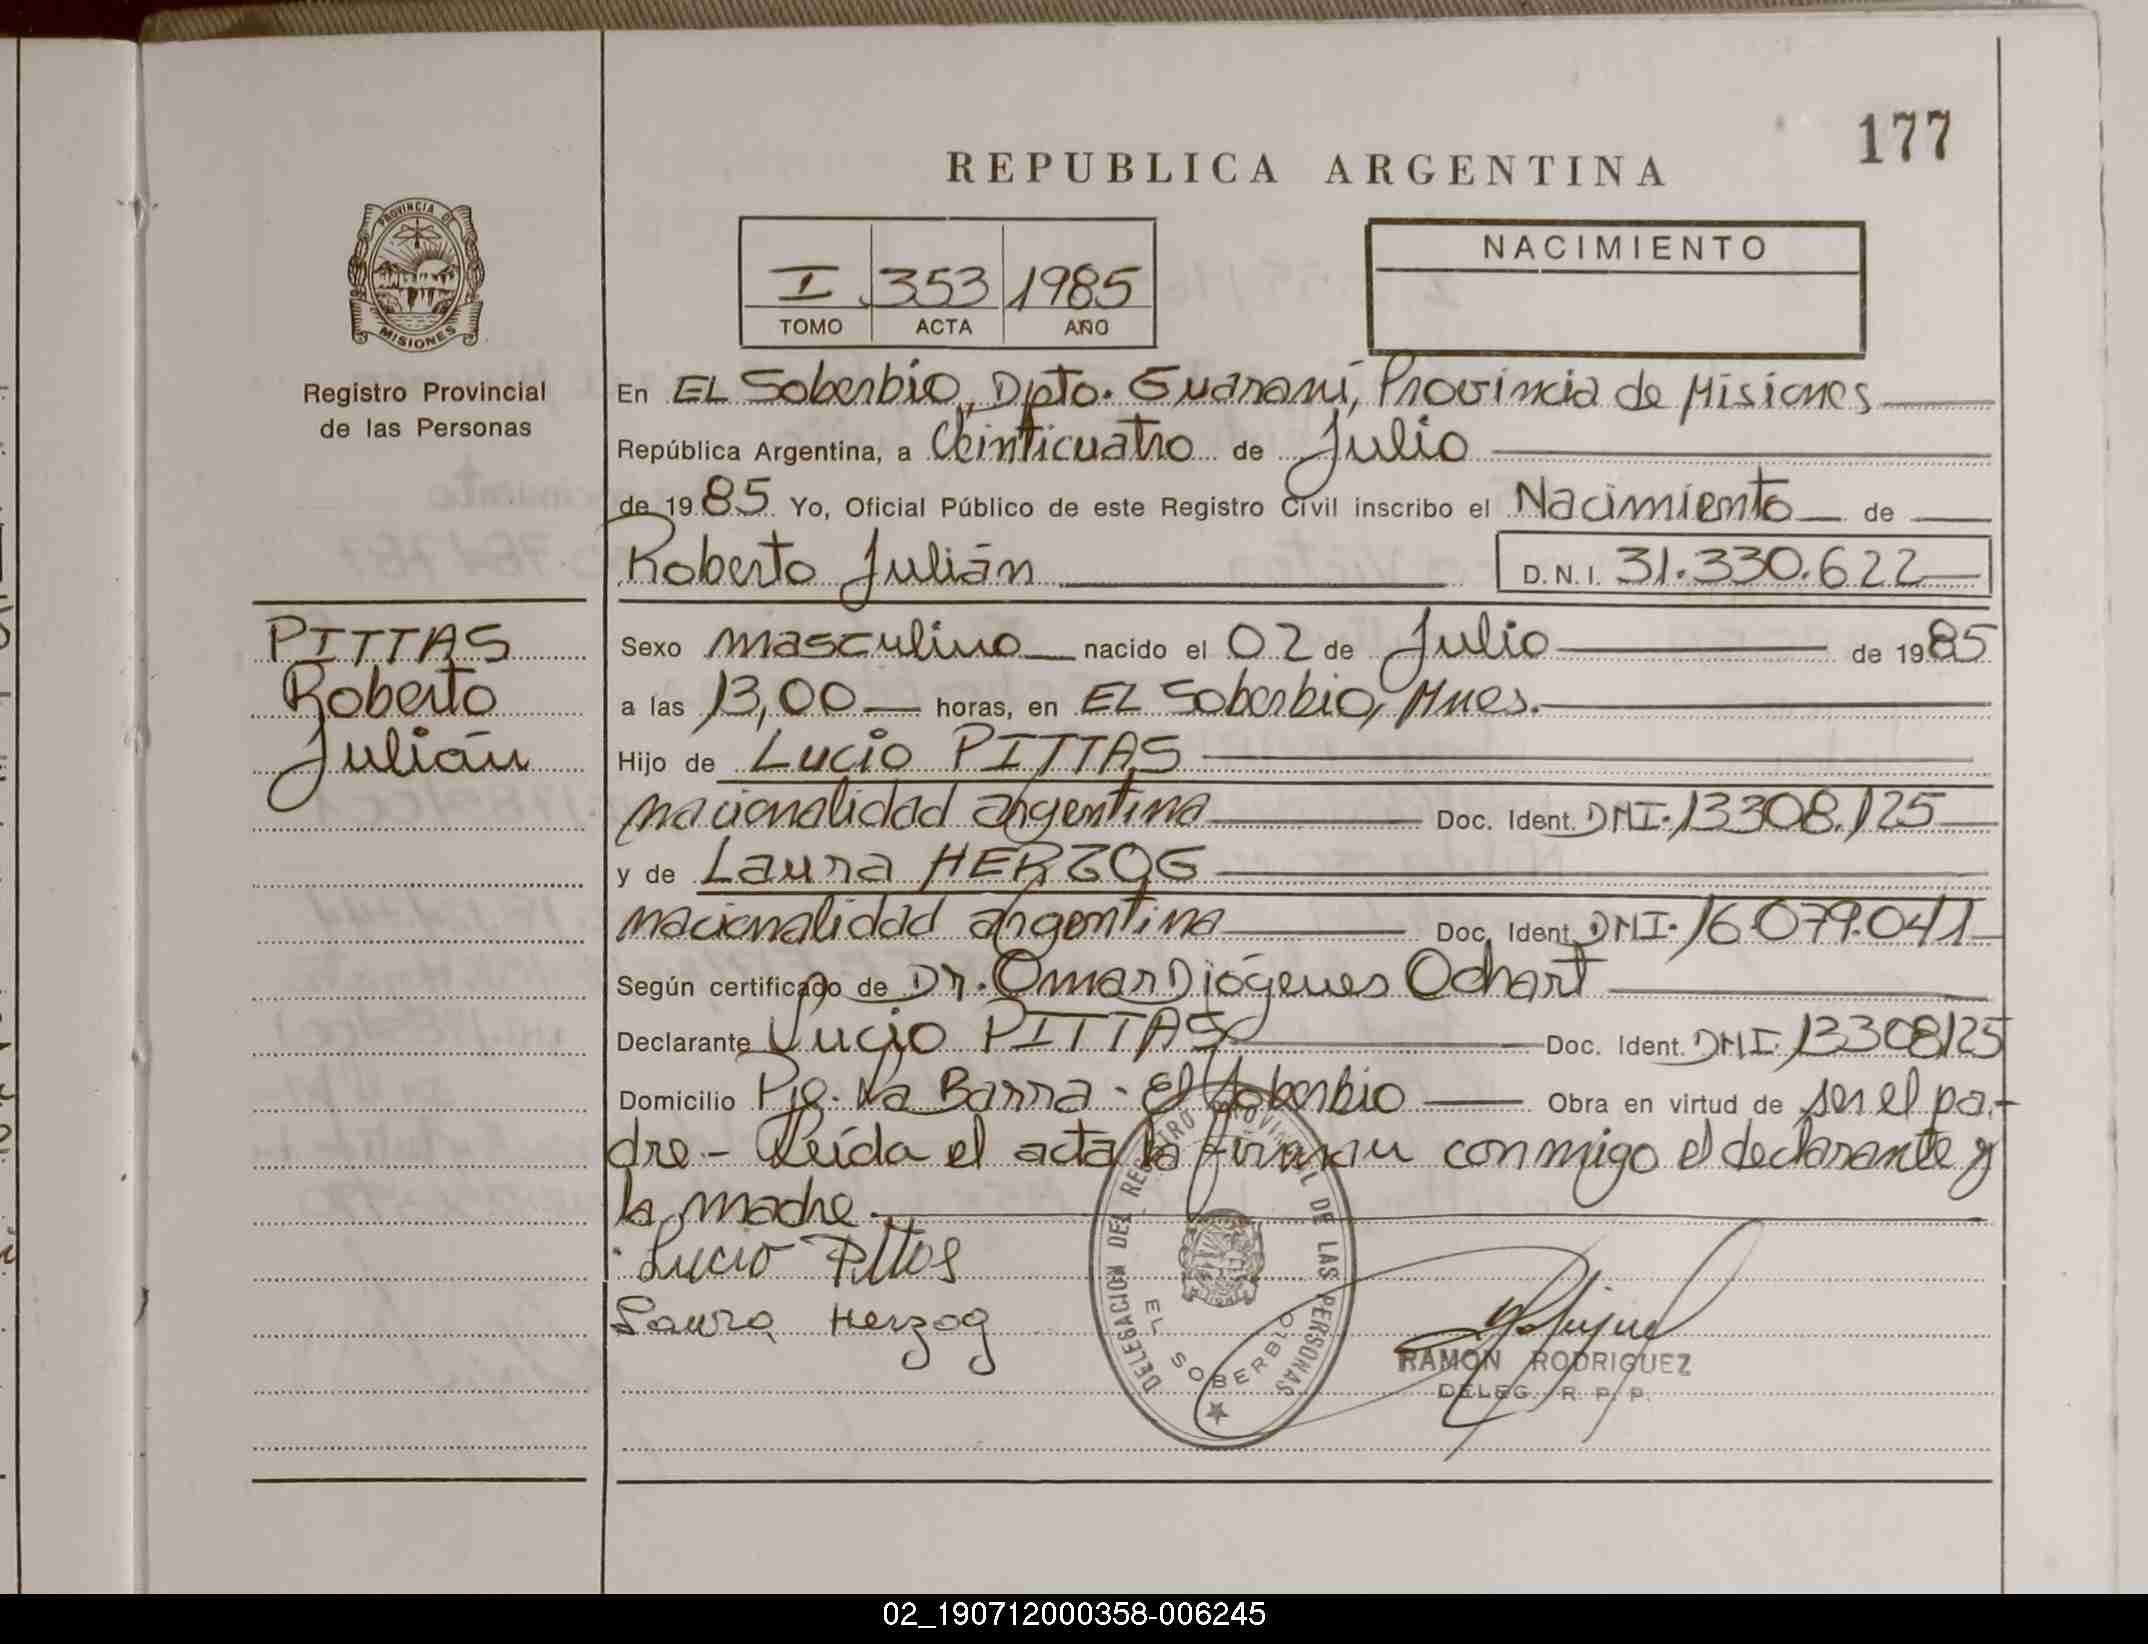 177
REPUBLICA ARGENTINA
PROVINCIA DE
MISIONES
Registro Provincial
de las Personas
I 353 1985
TOMO ACTA AÑO
NACIMIENTO
En EL Soberbio, Dpto. Guaraní, Provincia de Misiones
República Argentina, a Veinticuatro de Julio
de 1985 Yo, Oficial Público de este Registro Civil inscribo el Nacimiento de
Roberto Julián D.N.I. 31.330.622
PITTAS
Roberto
Julián
Sexo masculino nacido el 02 de Julio de 1985
a las 13,00 horas, en EL Soberbio, Mnes.
Hijo de Lucio PITTAS
nacionalidad argentina Doc. Ident. DNI. 13308.125
y de Laura HERZOG
nacionalidad argentina Doc. Ident. DNI. 16.079.041
Según certificado de Dr. Omar Diógenes Ochart
Declarante Lucio PITTAS Doc. Ident. DNI. 13308125
Domicilio Pje. La Barra - El Soberbio Obra en virtud de ser el pa-
dre.- Leída el acta la firman conmigo el declarante y
la madre.
Lucio Pittas
Laura Herzog
DELEGACION DEL REGISTRO PROVINCIAL DE LAS PERSONAS
EL SOBERBIO
RAMON RODRIGUEZ
DELEG. R. P. P.
02_190712000358-006245